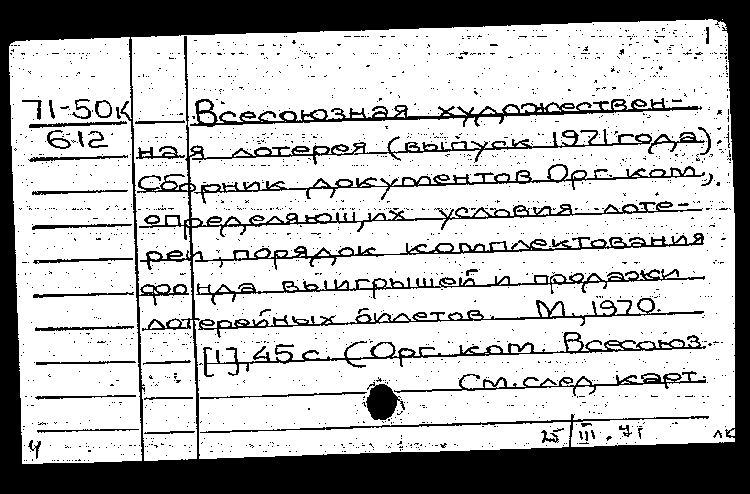 1
71-50к Всесоюзная художествен-
612 ная лотерея (выпуск 1971 года).
Сборник документов Орг. ком.,
определяющих условия лоте-
реи, порядок комплектования
фонда выигрышей и продажи
лотерейных билетов. М., 1970.
[1], 45 с. (Орг. ком. Всесоюз.
См. след. карт.
4 25/III.71 лк